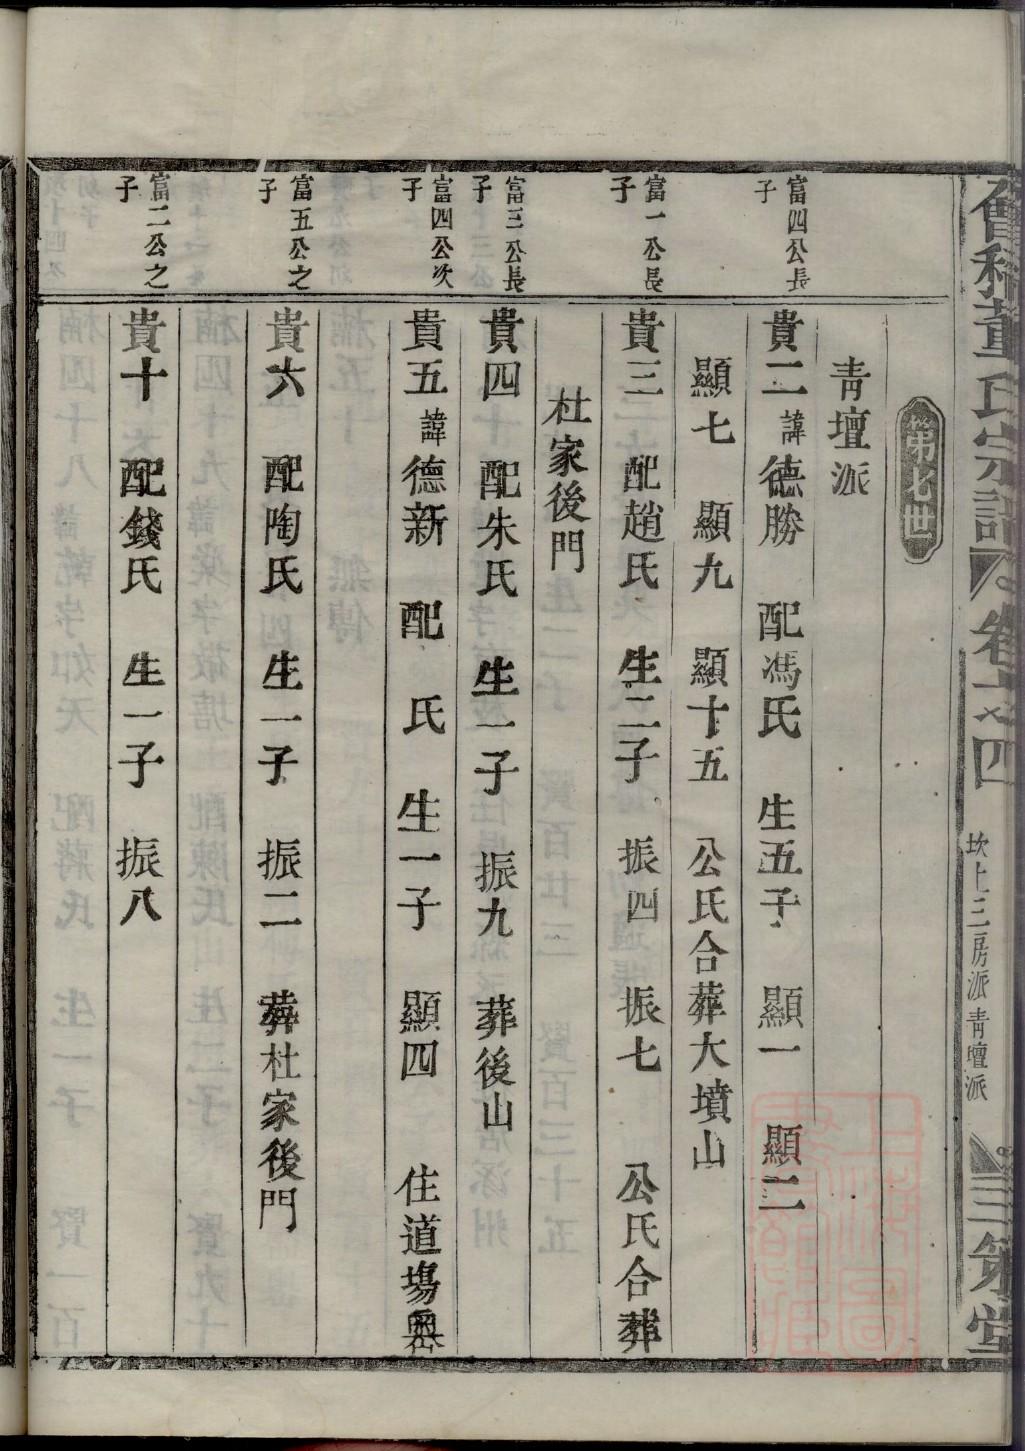 會稽董氏宗譜 卷之四 坎上三房派青壇派 三策堂
第七世
青壇派
富四公長子
貴二 諱德勝 配馮氏 生五子 顯一 顯二
顯七 顯九 顯十五 公氏合葬大墳山
富一公長子
貴三 配趙氏 生二子 振四 振七 公氏合葬
杜家後門
富三公長子
貴四 配朱氏 生一子 振九 葬後山
富四公次子
貴五 諱德新 配 氏 生一子 顯四 住道塲嶴
富五公之子
貴六 配陶氏 生一子 振二 葬杜家後門
富二公之子
貴十 配錢氏 生一子 振八